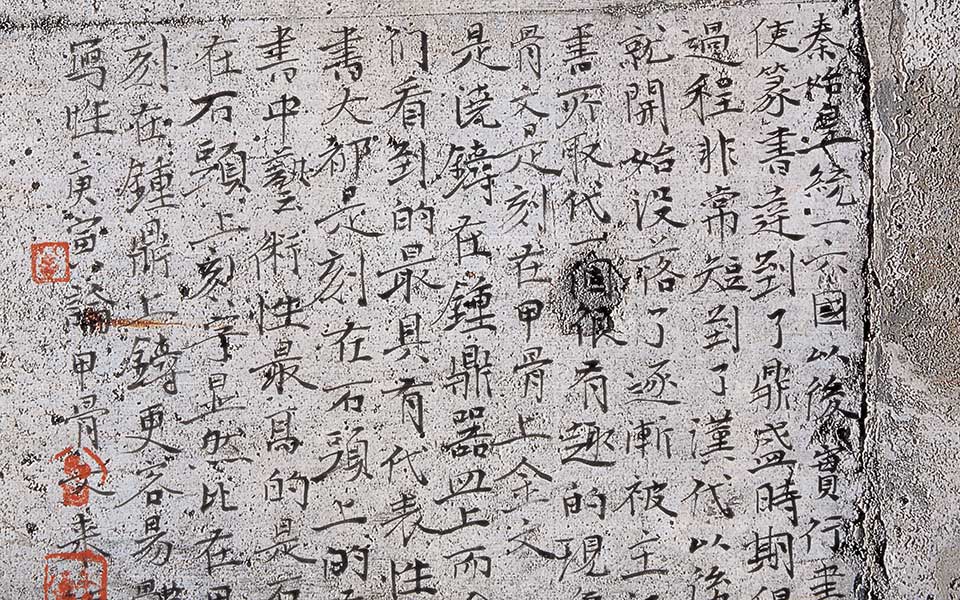 秦始皇統一六國以後實行書
使篆書達到了鼎盛時期
過程非常短到了漢代以後
就開始没落了逐漸被
書所取代一個很有趣的現
骨文是刻在甲骨上金文
是浇鑄在鍾鼎器皿上而
们看到的最具有代表性
書大都是刻在石頭上的
書中藝術性最高的是石
在石頭上刻字显然比在甲
刻在鍾鼎上鑄更容易
寫性庚寅論甲骨文来